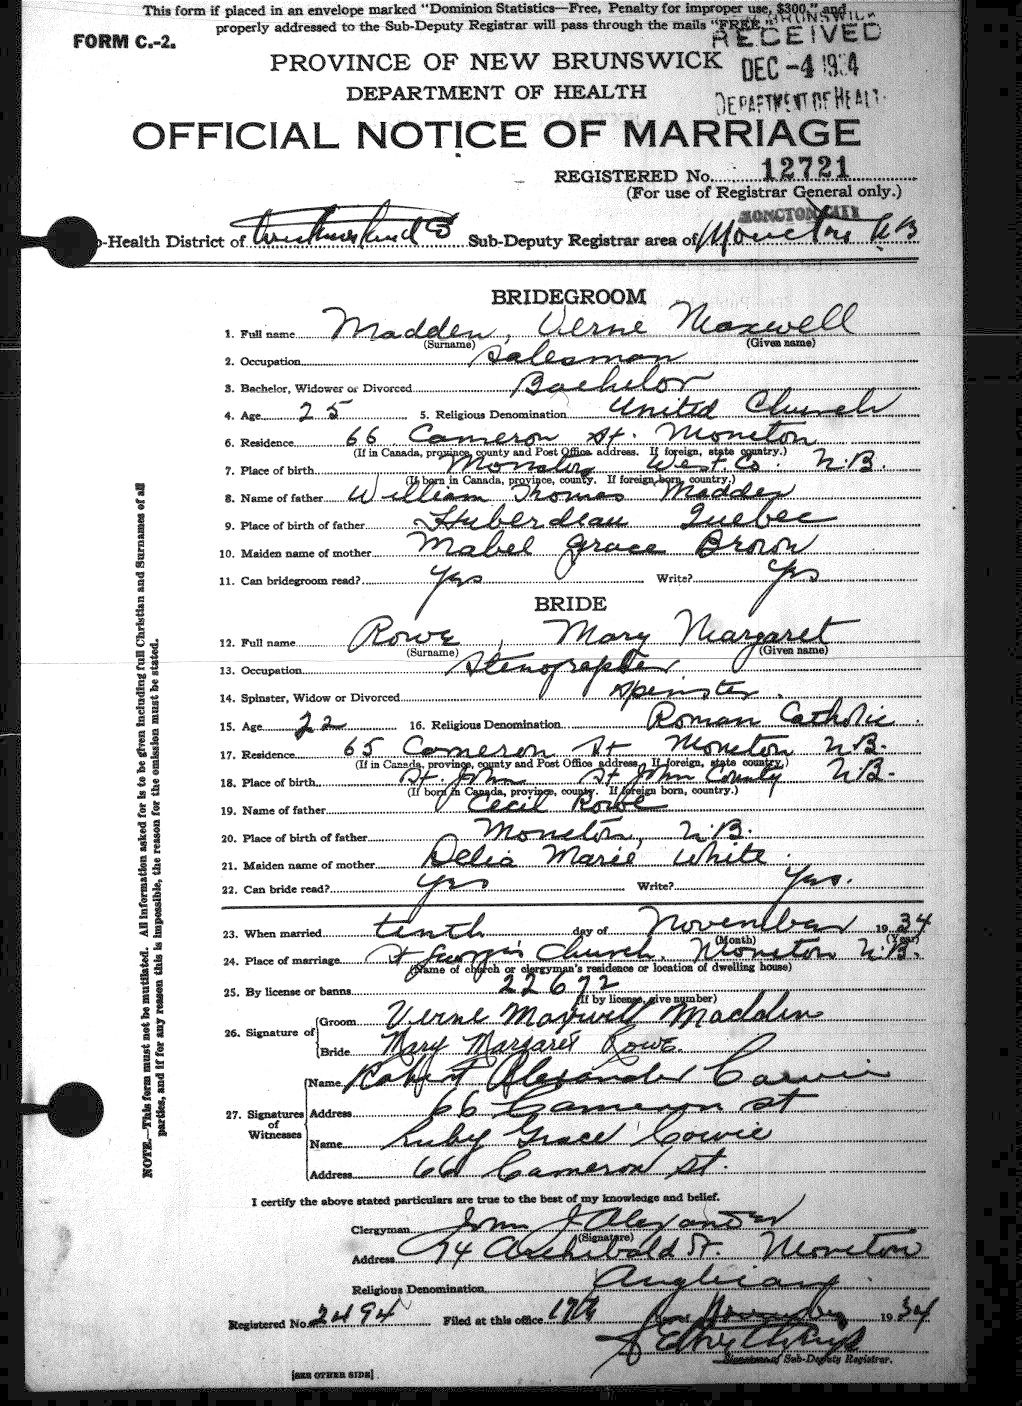 This form if placed in an envelope marked "Dominion Statistics—Free, Penalty for improper use, $300," and
properly addressed to the Sub-Deputy Registrar will pass through the mails "FREE."
FORM C.-2.
NEW BRUNSWICK
RECEIVED
DEC -4 1934
DEPARTMENT OF HEALT
PROVINCE OF NEW BRUNSWICK
DEPARTMENT OF HEALTH
OFFICIAL NOTICE OF MARRIAGE
REGISTERED No. 12721
(For use of Registrar General only.)
MONCTON
-Health District of Westmorland Sub-Deputy Registrar area of Moncton N B
BRIDEGROOM
1. Full name Madden, Verne Maxwell
(Surname) (Given name)
2. Occupation Salesman
3. Bachelor, Widower or Divorced Bachelor
4. Age 25 5. Religious Denomination United Church
6. Residence 66 Cameron St. Moncton
(If in Canada, province, county and Post Office address. If foreign, state country.)
7. Place of birth Moncton West. Co. N.B.
(If born in Canada, province, county. If foreign born, country.)
8. Name of father William Thomas Madden
9. Place of birth of father Huberdeau Quebec
10. Maiden name of mother Mabel Grace Brown
11. Can bridegroom read? Yes Write? Yes
BRIDE
12. Full name Rowe, Mary Margaret
(Surname) (Given name)
13. Occupation Stenographer
14. Spinster, Widow or Divorced Spinster.
15. Age 22 16. Religious Denomination Roman Catholic.
17. Residence 65 Cameron St Moncton N.B.
(If in Canada, province, county and Post Office address. If foreign, state country.)
18. Place of birth St. John St John County N.B.
(If born in Canada, province, county. If foreign born, country.)
19. Name of father Cecil Rowe
20. Place of birth of father Moncton, N.B.
21. Maiden name of mother Delia Marie White.
22. Can bride read? Yes Write? Yes.
23. When married tenth day of November 1934
(Month) (Year)
24. Place of marriage St George's Church, Moncton N.B.
(Name of church or clergyman's residence or location of dwelling house)
25. By license or banns 22672
(If by license, give number)
26. Signature of Groom Verne Maxwell Madden
Bride Mary Margaret Rowe.
27. Signatures of Witnesses
Name Robert Alexander Cowie
Address 66 Cameron St
Name Ruby Grace Cowie
Address 66 Cameron St.
I certify the above stated particulars are true to the best of my knowledge and belief.
Clergyman John J Alexander
(Signature)
Address 74 Archibald St. Moncton
Religious Denomination Anglican.
Registered No. 2494 Filed at this office 17th November 1934
Signature of Sub-Deputy Registrar.
[SEE OTHER SIDE]
NOTE.—This form must not be mutilated. All information asked for is to be given including full Christian and Surnames of all
parties, and if for any reason this is impossible, the reason for the omission must be stated.